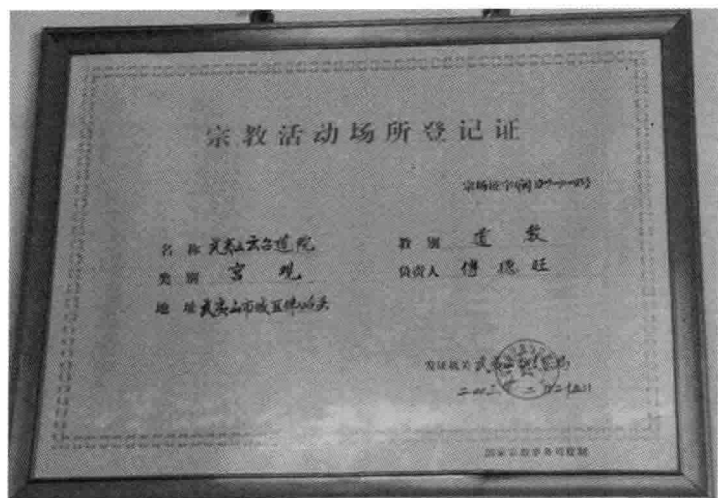 宗教活动场所登记证
宗场证字(闽)
名 称 武夷山云台道院
教 别 道 教
类 别 宫 观
负责人 傅德旺
地 址 武夷山市城
发证机关 武夷山
国家宗教事务局监制